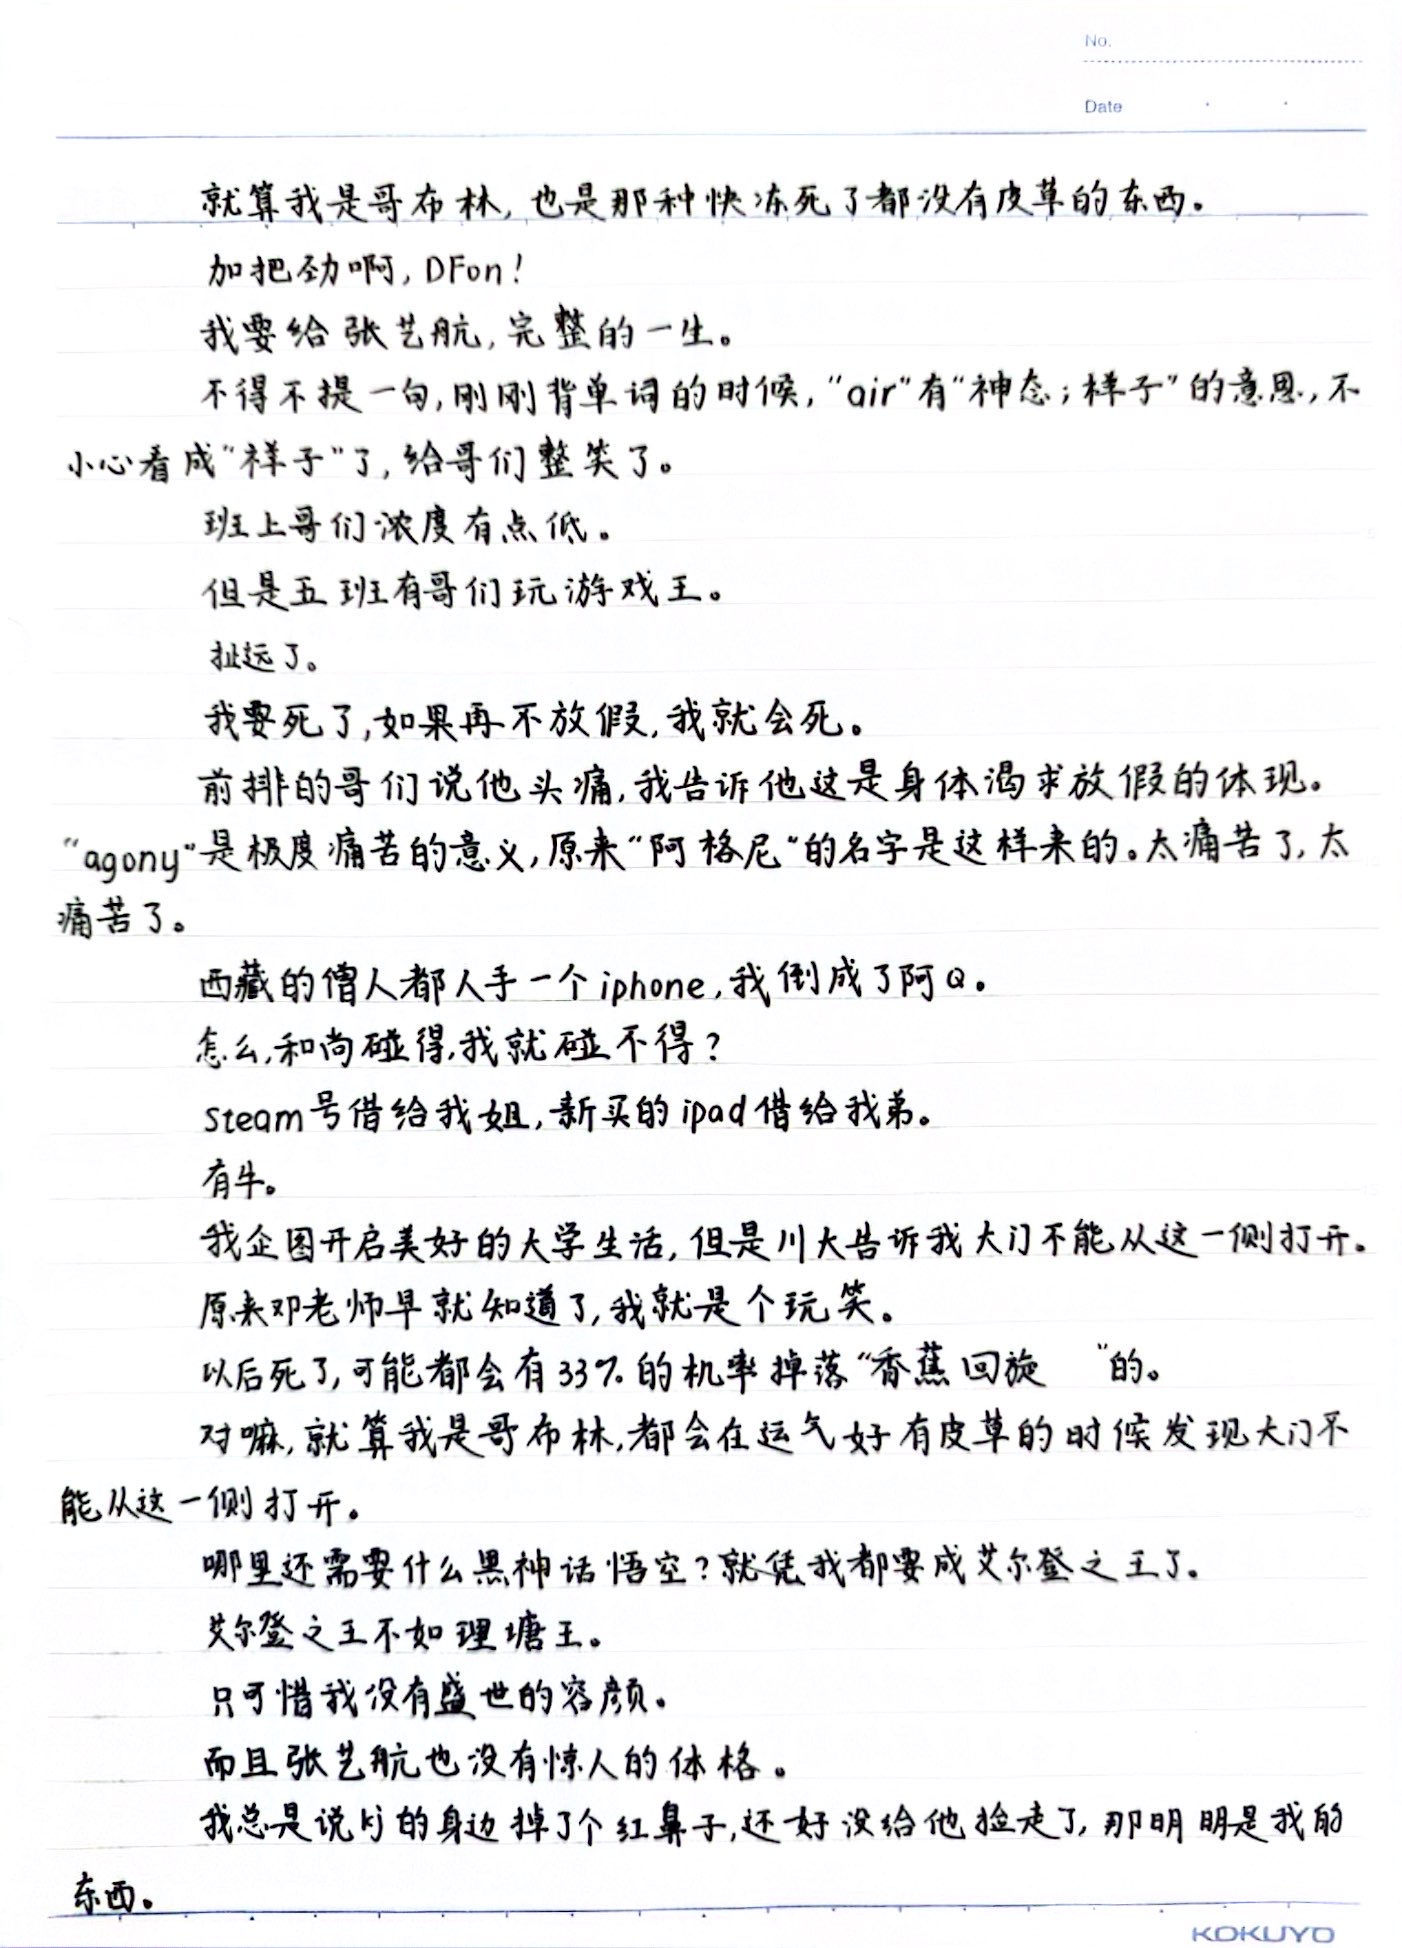 No.
Date
就算我是哥布林，也是那种快冻死了都没有皮草的东西。
加把劲啊，DFon！
我要给张艺航，完整的一生。
不得不提一句，刚刚背单词的时候，“air”有“神态；样子”的意思，不
小心看成“祥子”了，给哥们整笑了。
班上哥们浓度有点低。
但是五班有哥们玩游戏王。
扯远了。
我要死了，如果再不放假，我就会死。
前排的哥们说他头痛，我告诉他这是身体渴求放假的体现。
“agony”是极度痛苦的意义，原来“阿格尼”的名字是这样来的。太痛苦了，太
痛苦了。
西藏的僧人都人手一个iphone，我倒成了阿Q。
怎么，和尚碰得，我就碰不得？
steam号借给我姐，新买的ipad借给我弟。
有牛。
我企图开启美好的大学生活，但是川大告诉我大门不能从这一侧打开。
原来邓老师早就知道了，我就是个玩笑。
以后死了，可能都会有33%的机率掉落“香蕉回旋 ”的。
对嘛，就算我是哥布林，都会在运气好有皮草的时候发现大门不
能从这一侧打开。
哪里还需要什么黑神话悟空？就凭我都要成艾尔登之王了。
艾尔登之王不如理塘王。
只可惜我没有盛世的容颜。
而且张艺航也没有惊人的体格。
我总是说kj的身边掉了个红鼻子，还好没给他捡走了，那明明是我的
东西。
KOKUYO